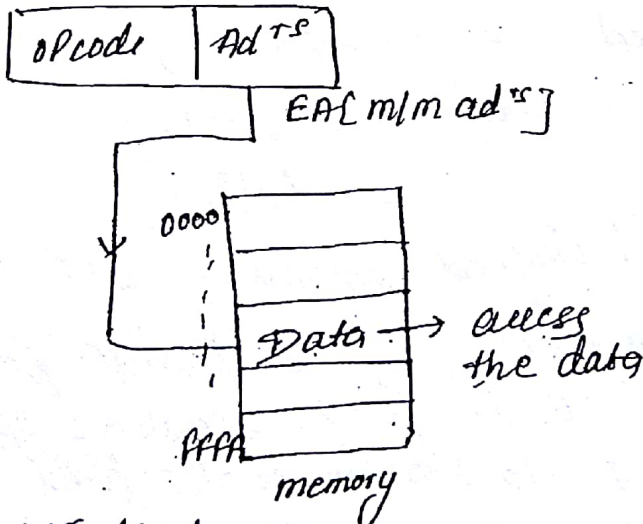 opcode Ad^rs
EA[m/m ad^rs]
0000
Data → access
the data
ffff
memory